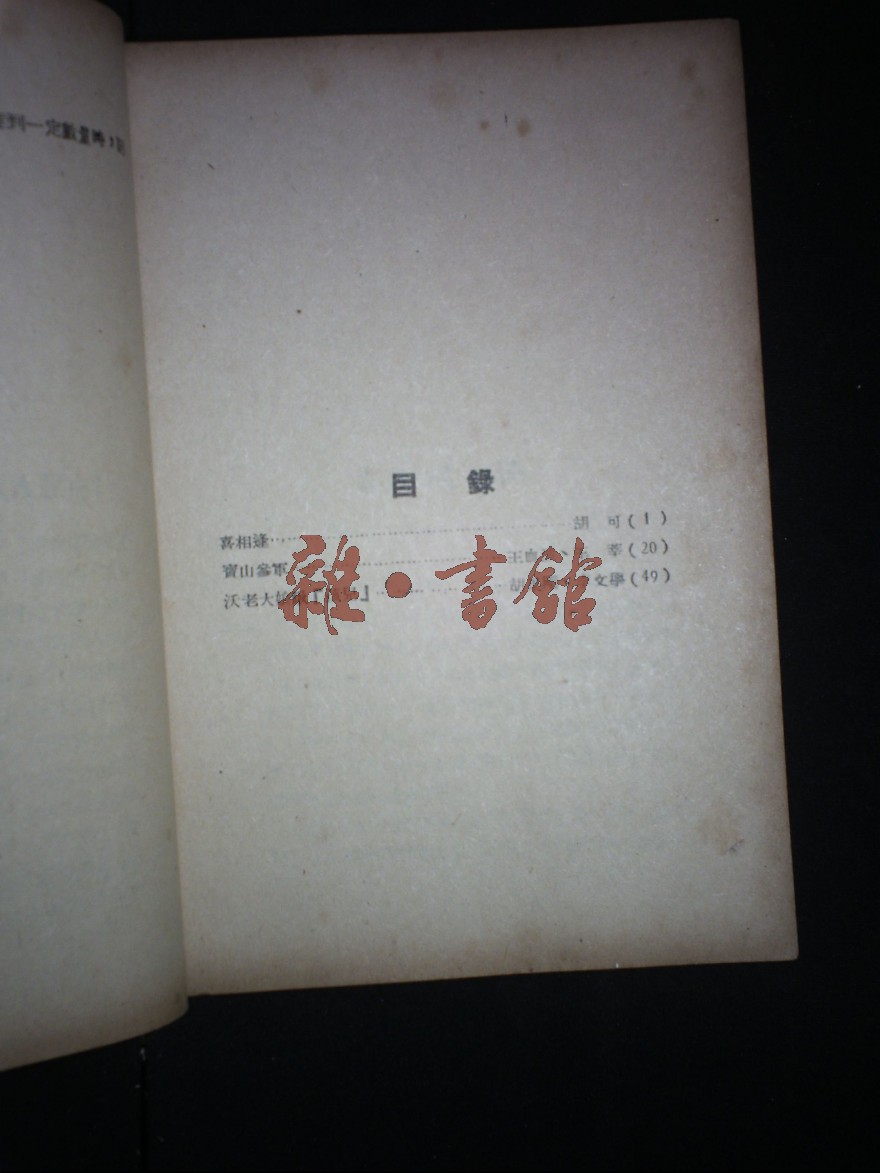 到一定數量時，
目 錄
喜相逢 胡 可(1)
寶山參軍 王血 莘(20)
沃老大 』 胡 文學(49)
雜·書館